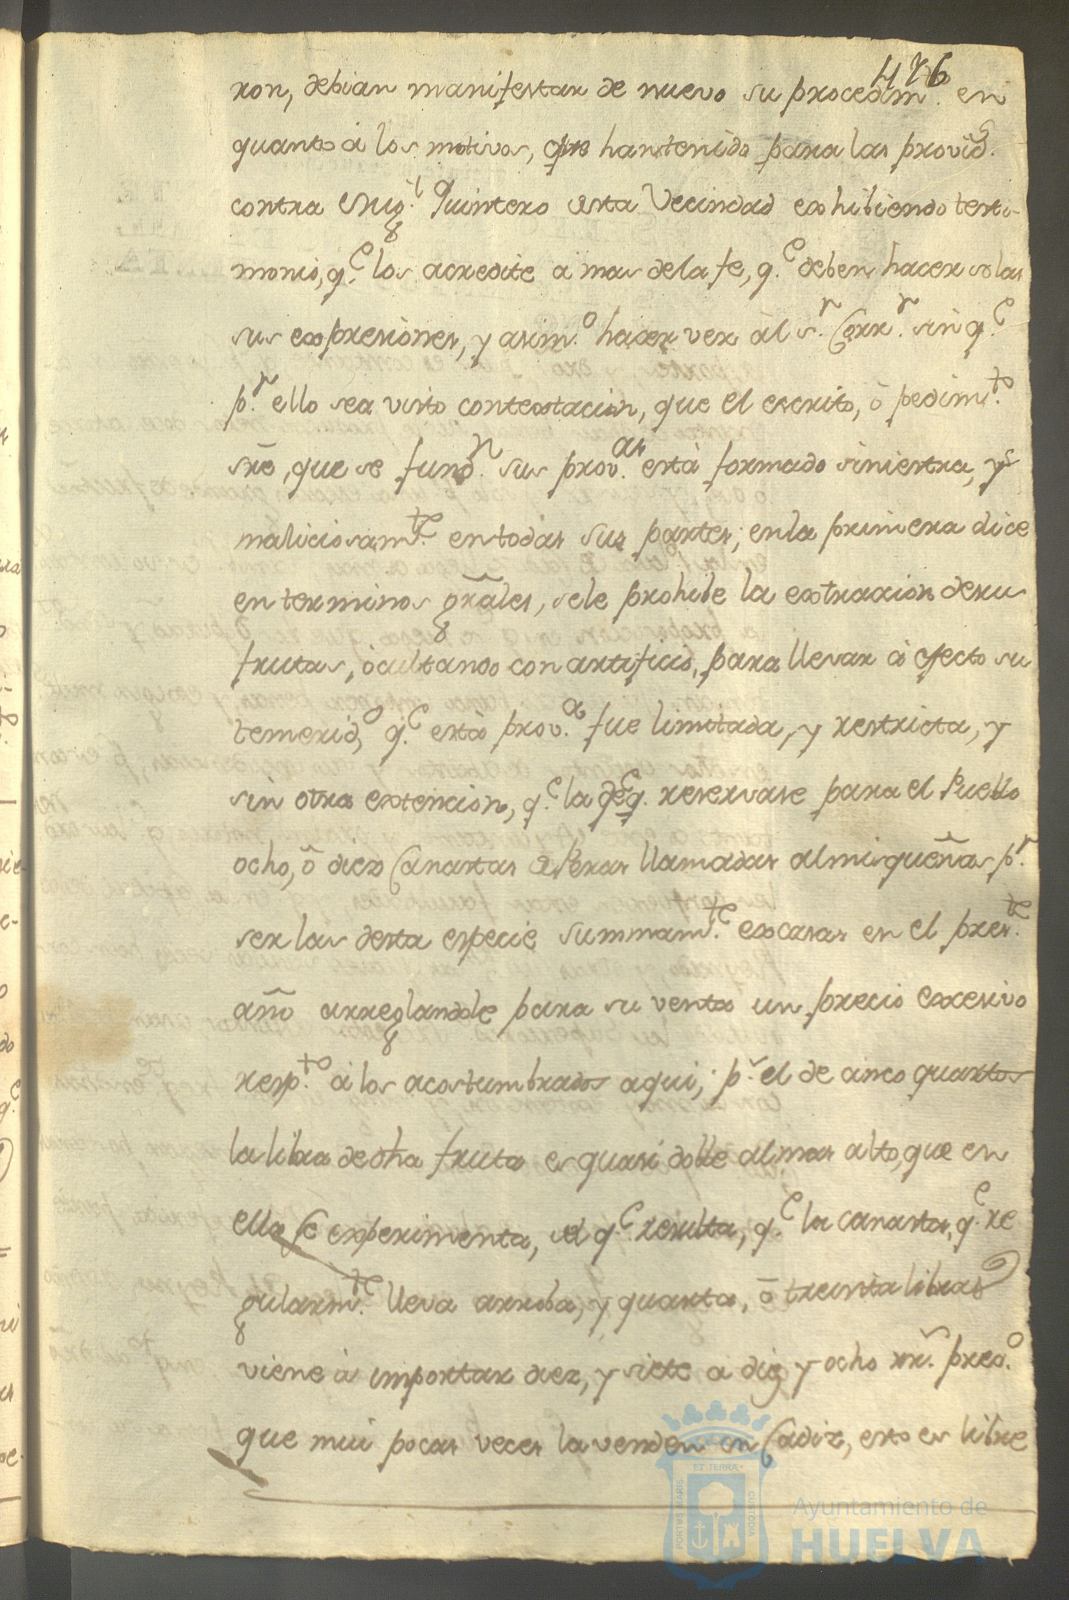 476
ron, debian manifestar de nuevo su procedimto. en
quanto à los motivos, que han tenido para las provids.
contra Migl. Quintero desta Vecindad exhibiendo testi-
monio, qe. los acredite a mas dela fe, qe. deben hacer solas
sus expresiones, y asimo. hacer ver àl sr. Corrr. sin qe.
pr. ello sea visto contextacion, que el escrito, ò pedimto.
sre, que se fundn. sus provas. està formado siniestra, y
maliciosamte. en todas sus partes; en la primera dice
en terminos grales, sele prohibe la extraxion desus
frutas, òcultando con artificio, para llevar à efecto su
temerido, qe. esta prova. fue limitada, y restricta, y
sin otra extencion, qe. la de qe. reservase para el Pueblo
ocho, ô diez Canastas de Peras llamadas almisqueñas pr.
ser las desta especie summamte. excasas en el preste.
año arreglandole para su venta un precio excesivo
respto. à los acostumbrados aqui; pr. el de cinco quartos
la libra de dha fruta es quasi doble al mas alto, que en
ella se experimenta, de qe. resulta, qe. la canasta, qe. re
gularmte. lleva arroba, y quarta, ô treinta libras
viene à importar diez, y siete a diez y ocho rr. precio.
que mui pocas veces la venden en Cadiz, esto es libre
PORTUS MARIS
ET TERRA
CUSTODIA
Ayuntamiento de
HUELVA